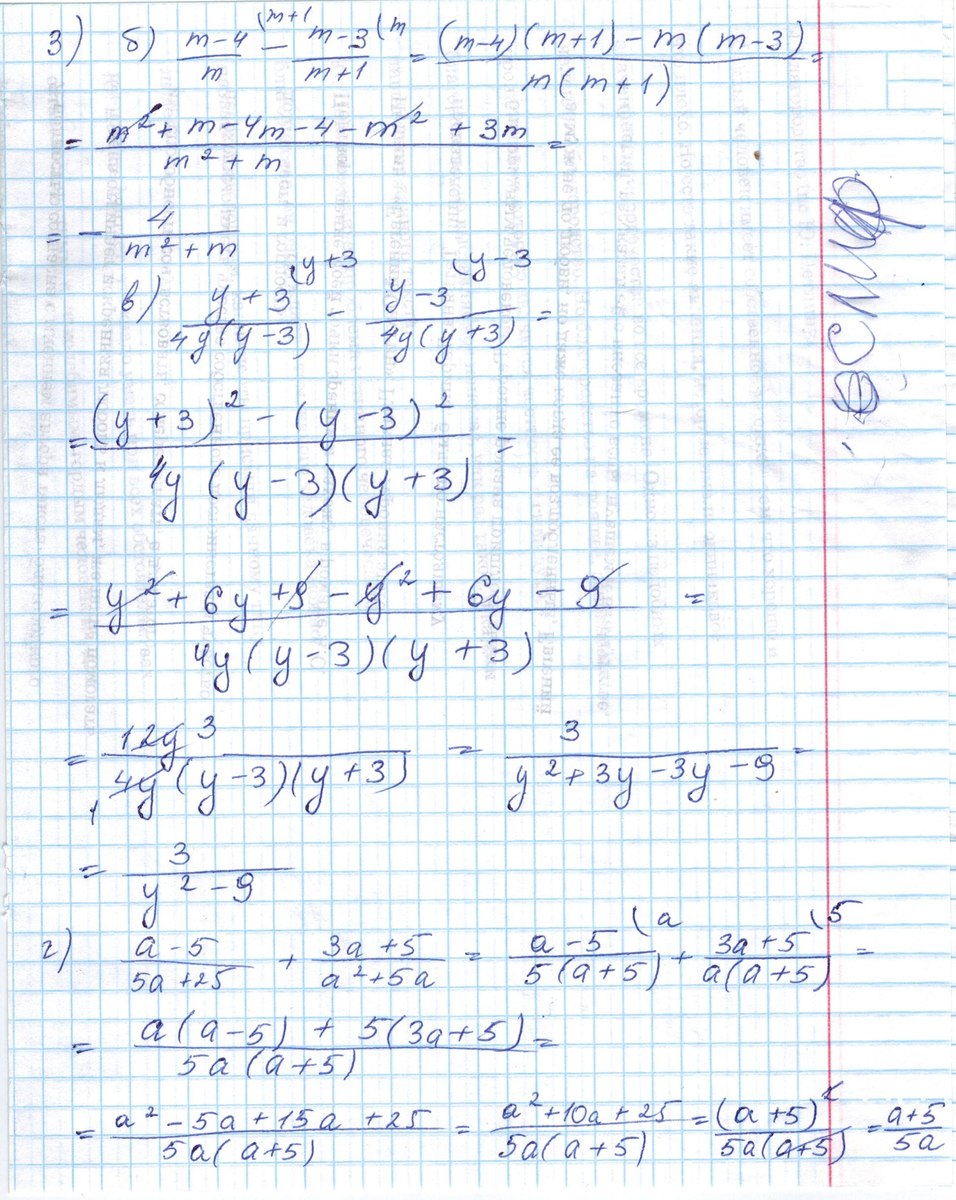 3) б) (m-4)/m (m+1 - (m-3)/(m+1) (m = ((m-4)(m+1) - m(m-3))/(m(m+1)) =
= (m² + m - 4m - 4 - m² + 3m)/(m² + m) =
= - 4/(m² + m)
в) (y+3)/(4y(y-3)) (y+3 - (y-3)/(4y(y+3)) (y-3 =
= ((y+3)² - (y-3)²)/(4y(y-3)(y+3)) =
= (y² + 6y + 9 - y² + 6y - 9)/(4y(y-3)(y+3)) =
= 12y 3/(1 4y(y-3)(y+3)) = 3/(y² + 3y - 3y - 9) =
= 3/(y² - 9)
г) (a-5)/(5a+25) + (3a+5)/(a²+5a) = (a-5)/(5(a+5)) (a + (3a+5)/(a(a+5)) (5 =
= (a(a-5) + 5(3a+5))/(5a(a+5)) =
= (a² - 5a + 15a + 25)/(5a(a+5)) = (a² + 10a + 25)/(5a(a+5)) = (a+5)²/(5a(a+5)) = (a+5)/(5a)